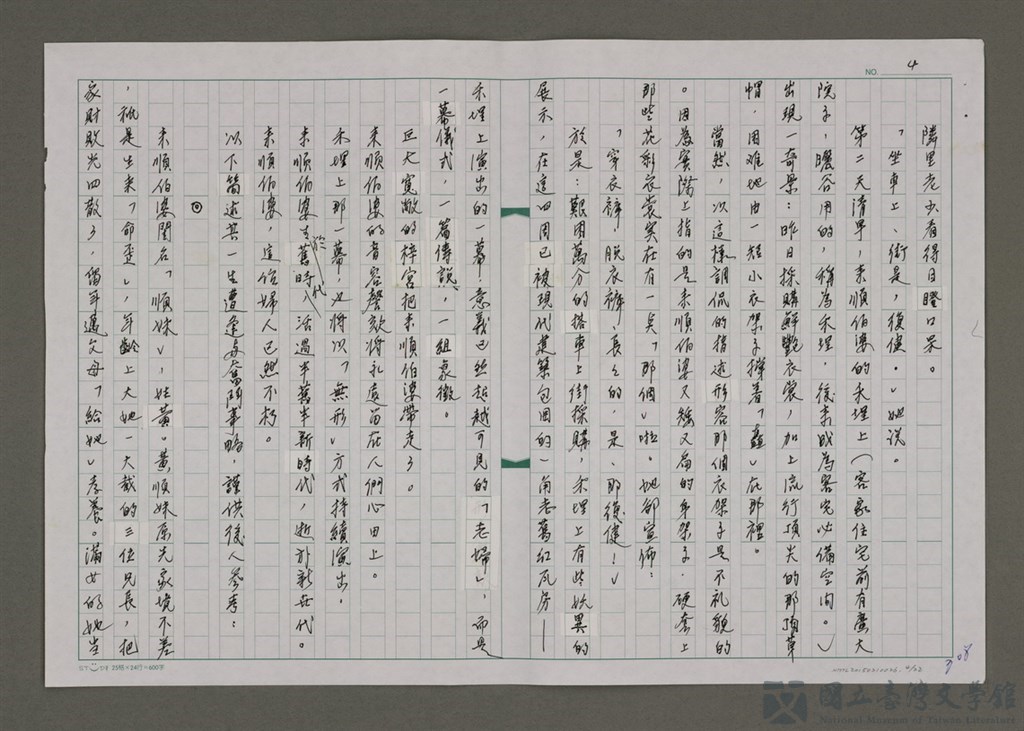 NO. 4
隣里老少看得目瞪口呆。
「坐車上、街是,復健。」她說。
第二天清早,來順伯婆的禾埕上(客家住宅前有廣大
院子,曬谷用的,稱為禾埕,後來成為客宅必備空間。)
出現一奇景:昨日採購鮮艷衣裳,加上流行頂尖的那頂草
帽,困难地由一短小衣架子撐着「矗」在那裡。
當然,以這樣調侃的描述形容那個衣架子是不礼貌的
。因為實際上指的是來順伯婆又矮又扁的骨架子,硬套上
那些花彩衣裳实在有一点「那個」啦。她卻宣佈:
「穿衣褲,脫衣褲、長久的,是、那復健!」
於是:艱困萬分的搭車上街採購,禾埕上有些妖異的
展示,在這四周已被現代建築包围的一角老舊紅瓦房——
禾埕上演出的一幕,意義已然超越可見的「老婦」,而是
一幕儀式,一篇傳說,一組象徵。
巨大寬敞的梓宮把來順伯婆帶走了。
來順伯婆的音容謦欬將永遠留在人們心田上。
禾埕上那一幕,也將以「無形」方式持續演出。
來順伯婆於舊時代,活過半舊半新時代,逝於新世代。
來順伯婆,這位婦人已然不朽。
以下簡述其一生遭逢與奮鬥事略,謹供後人參考:
◎
來順伯婆閨名「順妹」,姓黃。黃順妹原先家境不差
,祇是生來「命歪」,年齡上大她一大截的三位兄長,把
家財敗光四散了,留年邁父母「給她」孝養。滿廿的她当
23格×24行=600字
308
國立臺灣文學館
National Museum of Taiwan Literature